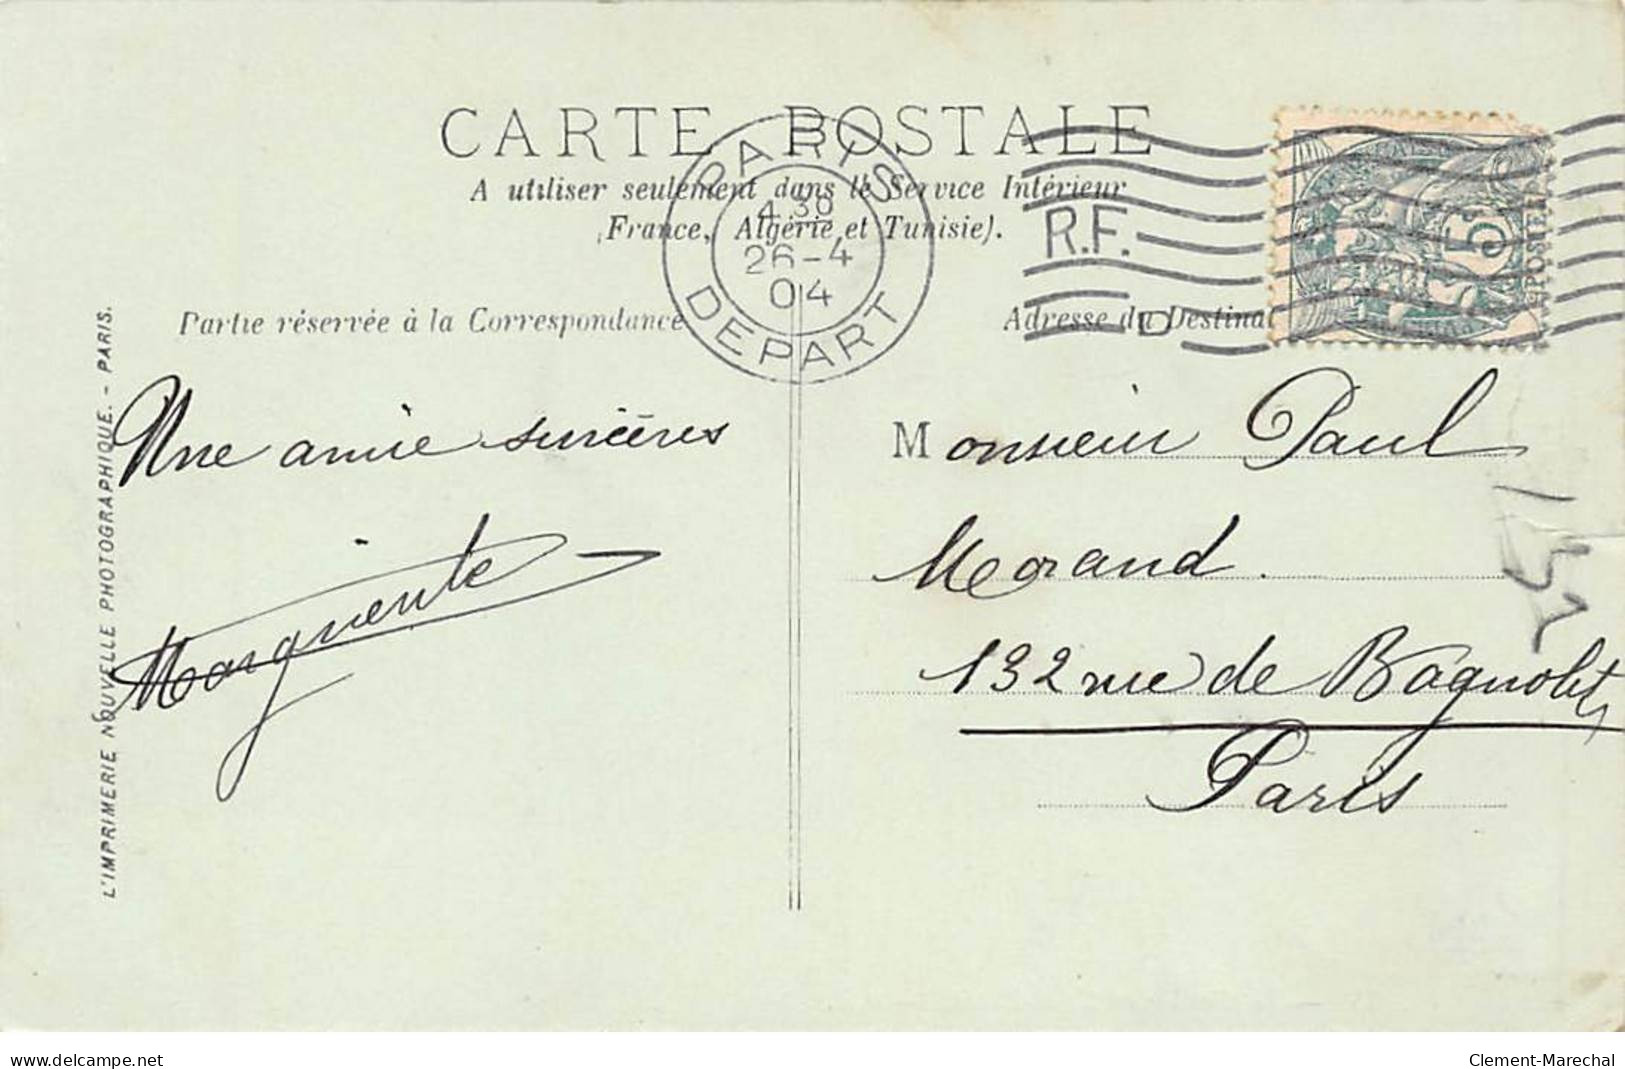 CARTE POSTALE
A utiliser seulement dans le Service Intérieur
(France, Algérie et Tunisie).
PARIS
4 30
26-4
04
DEPART
R.F.
D
5c
POSTES
Partie réservée à la Correspondance
Adresse du Destina
Une amie sincères
Marguerite
Monsieur Paul
Morand.
132 rue de Bagnolet
Paris
L'IMPRIMERIE NOUVELLE PHOTOGRAPHIQUE. - PARIS.
delcampe.net
Clement-Marechal